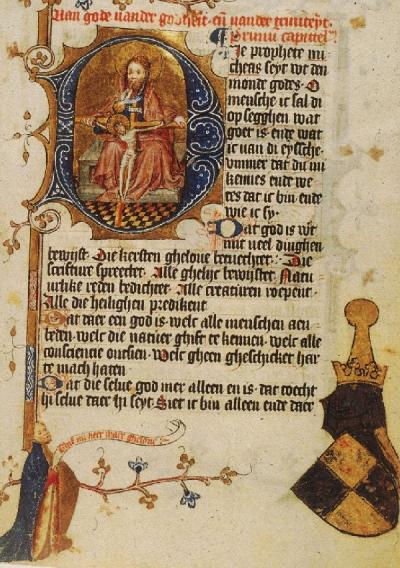 Van gode vander godheit en vander triniteyt.
Primu capitel
Die prophete mi
cheas seyt wt den
monde godes · O
mensche ic sal di
op segghen wat
goet is ende wat
ic van di eyssche ·
ummer dat du mi
kennes ende we
tes dat ic bin ende
wie ic sy ·
Dat god is
mit veel dinghen
bewijst. Die kersten gheloue Die
scrifture spreectet. Alle ghelijc bewijstet. Natu
urlike reden bedichtet. Alle creaturen roepent
Alle die heilighen predikent
Dat daer een god is welc alle menschen aen
beden. welc die natuer ghift te kennen. welc alle
conscientie ontsien. Welc gheen gheschicket har
te mach haten
Dat die selue god mer alleen en is · dat toecht
hi selue daer hi seyt. Siet ic bin alleen ende daer
mi heer gheloue